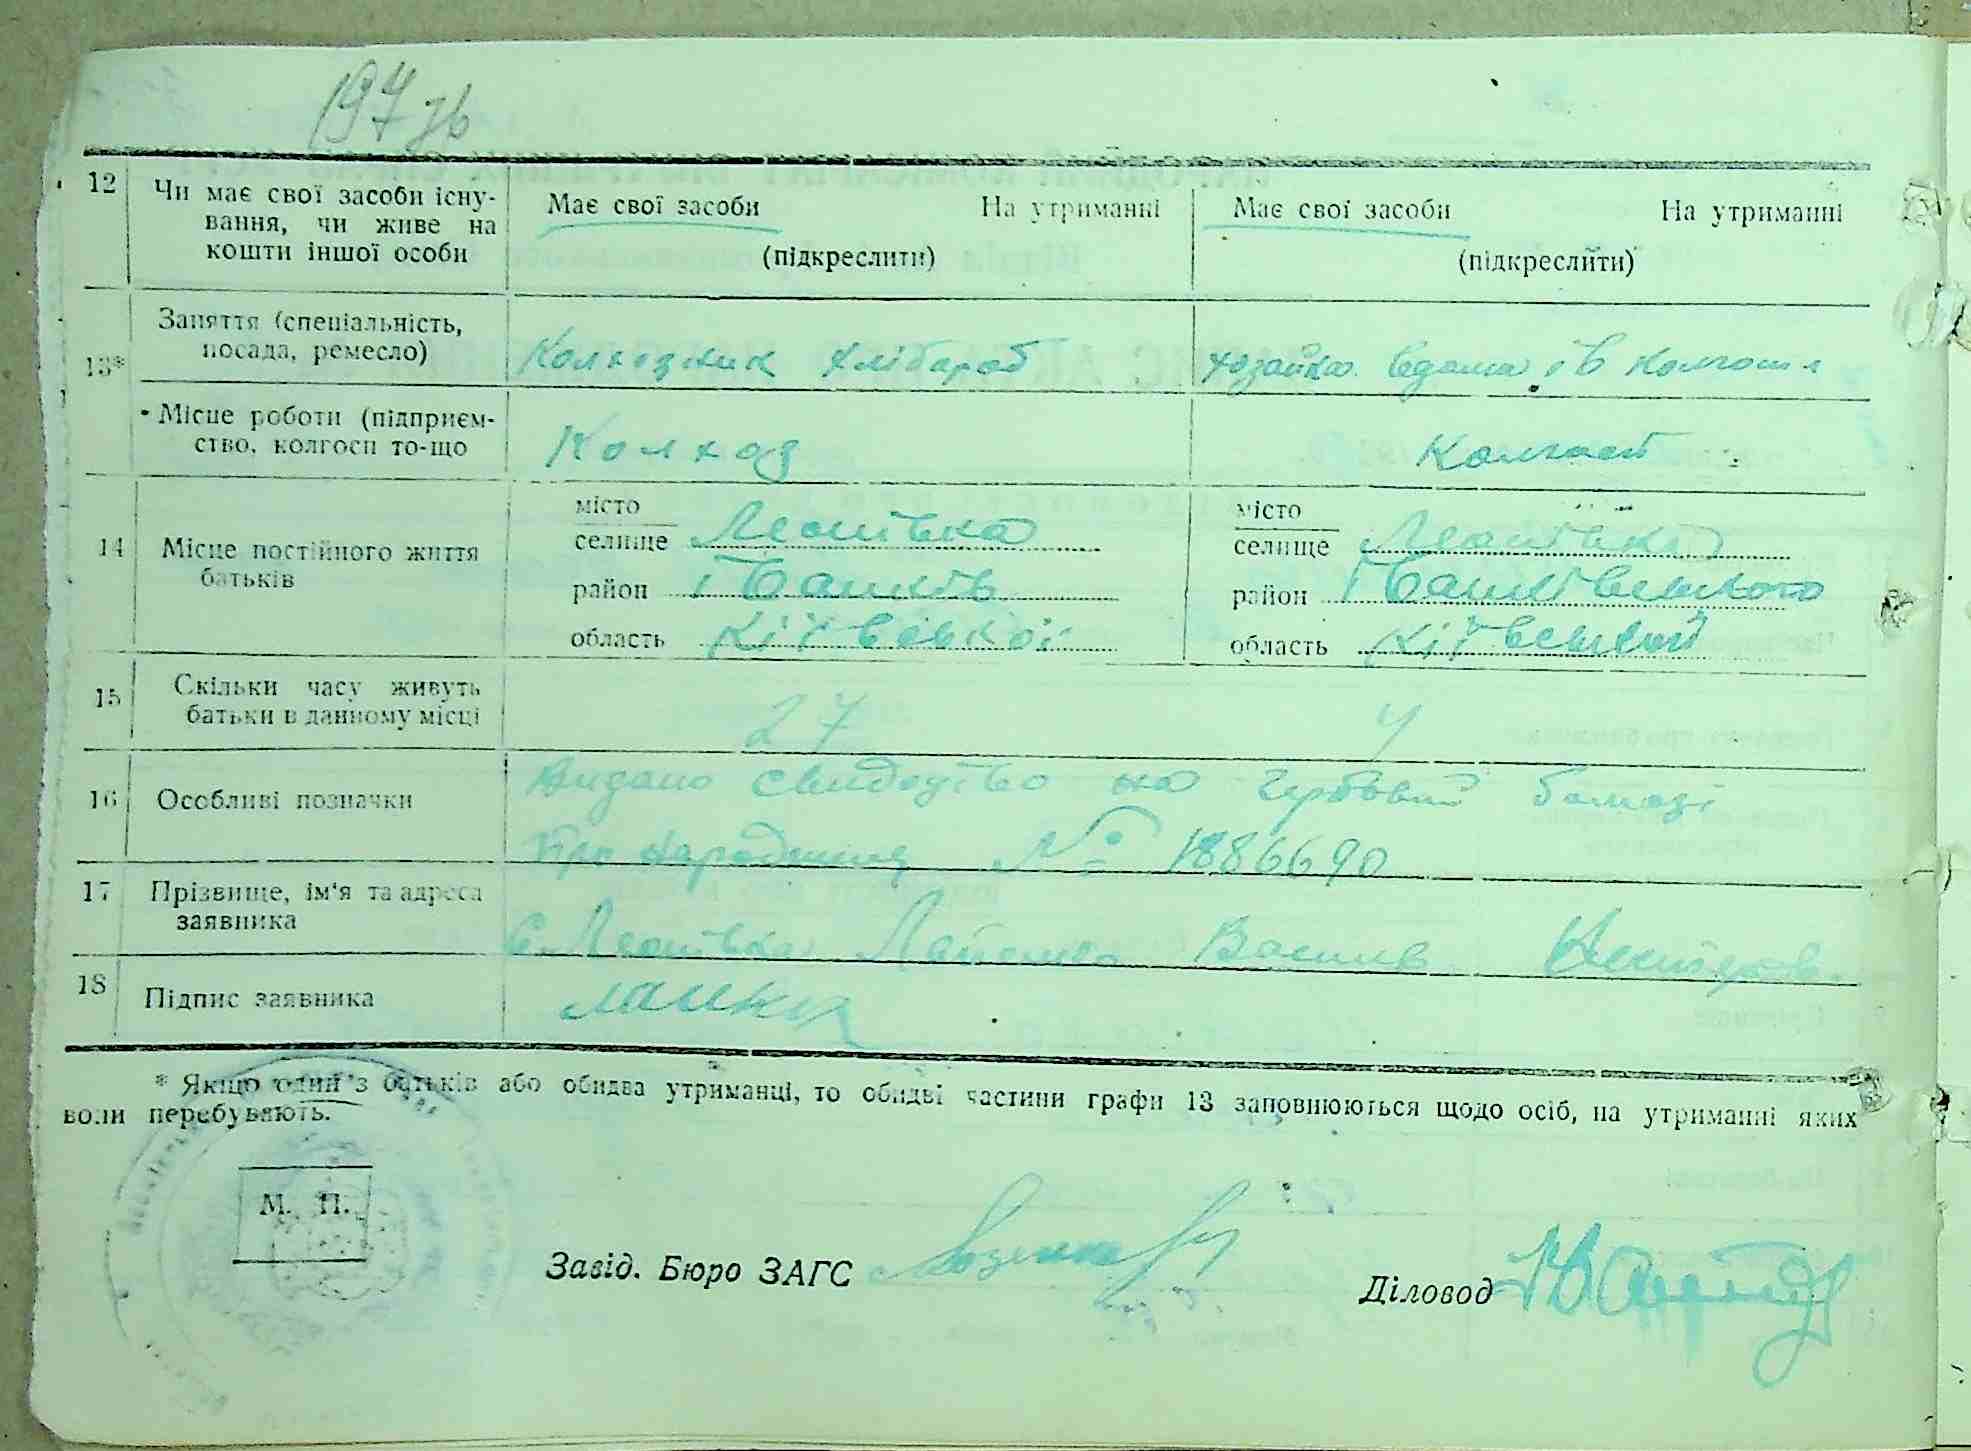 197 зв
12 Чи має свої засоби існу- Має свої засоби На утриманні Має свої засоби На утриманні
вання, чи живе на
кошти іншої особи (підкреслити) (підкреслити)
13* Заняття (спеціальність,
посада, ремесло) Колхозник хлібороб хозайка вдома і в колгоспі
Місце роботи (підприєм-
ство, колгосп то-що Колхоз Колгосп
14 Місце постійного життя
батьків
місто
селище Леонівка
район Іванків
область Київської
місто
селище Леонівка
район Іванківського
область
15 Скільки часу живуть
батьки в данному місці 27 4
16 Особливі позначки Видано свидоцтво на гербовий бомазі
Про народження № 1886690
17 Прізвище, ім'я та адреса
заявника с. Леонівка Василь
18 Підпис заявника
* Якщо один з батьків або обидва утриманці, то обидві частини графи 13 заповнюються щодо осіб, на утриманні яких
вони перебувають.
М. П.
Завід. Бюро ЗАГС
Діловод